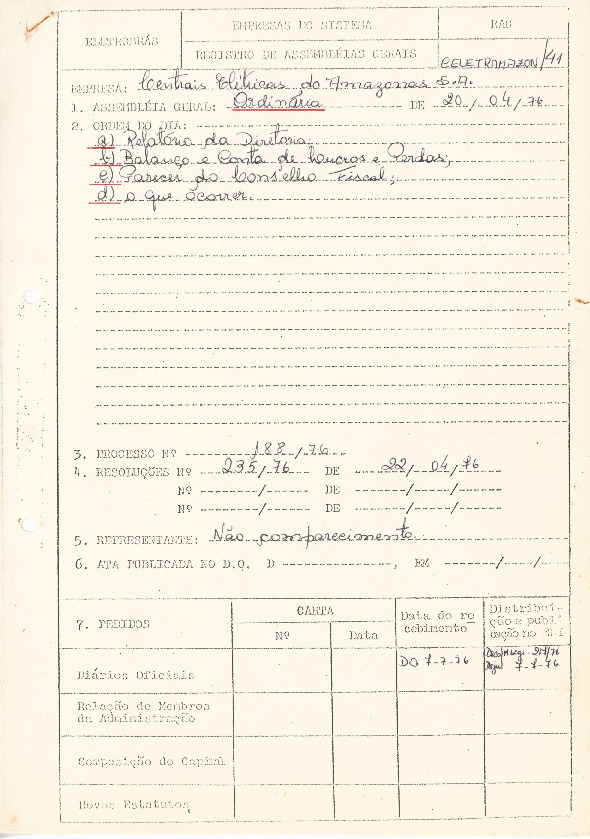 ELETROBRÁS
EMPRESAS DO SISTEMA
RAG
REGISTRO DE ASSEMBLÉIAS GERAIS
CELETRAMAZON/41
EMPRESA: Centrais Elétricas do Amazonas S.A.
1. ASSEMBLÉIA GERAL: Ordinária DE 20/04/76
2. ORDEM DO DIA:
a) Relatório da Diretoria;
b) Balanço e Conta de Lucros e Perdas;
c) Parecer do Conselho Fiscal;
d) o que ocorrer.
3. PROCESSO Nº 188/76
4. RESOLUÇÕES Nº 235/76 DE 22/04/76
Nº / DE / /
Nº / DE / /
5. REPRESENTANTE: Não comparecimento
6. ATA PUBLICADA NO D.O. D , EM / /
7. PEDIDOS
CARTA
Nº
Data
Data do re
cebimento
Distribui-
ção e publi
cação no
Diários Oficiais
DO 7-7-76
7-7-76
Relação de Membros
da Administração
Composição do Capital
Novos Estatutos